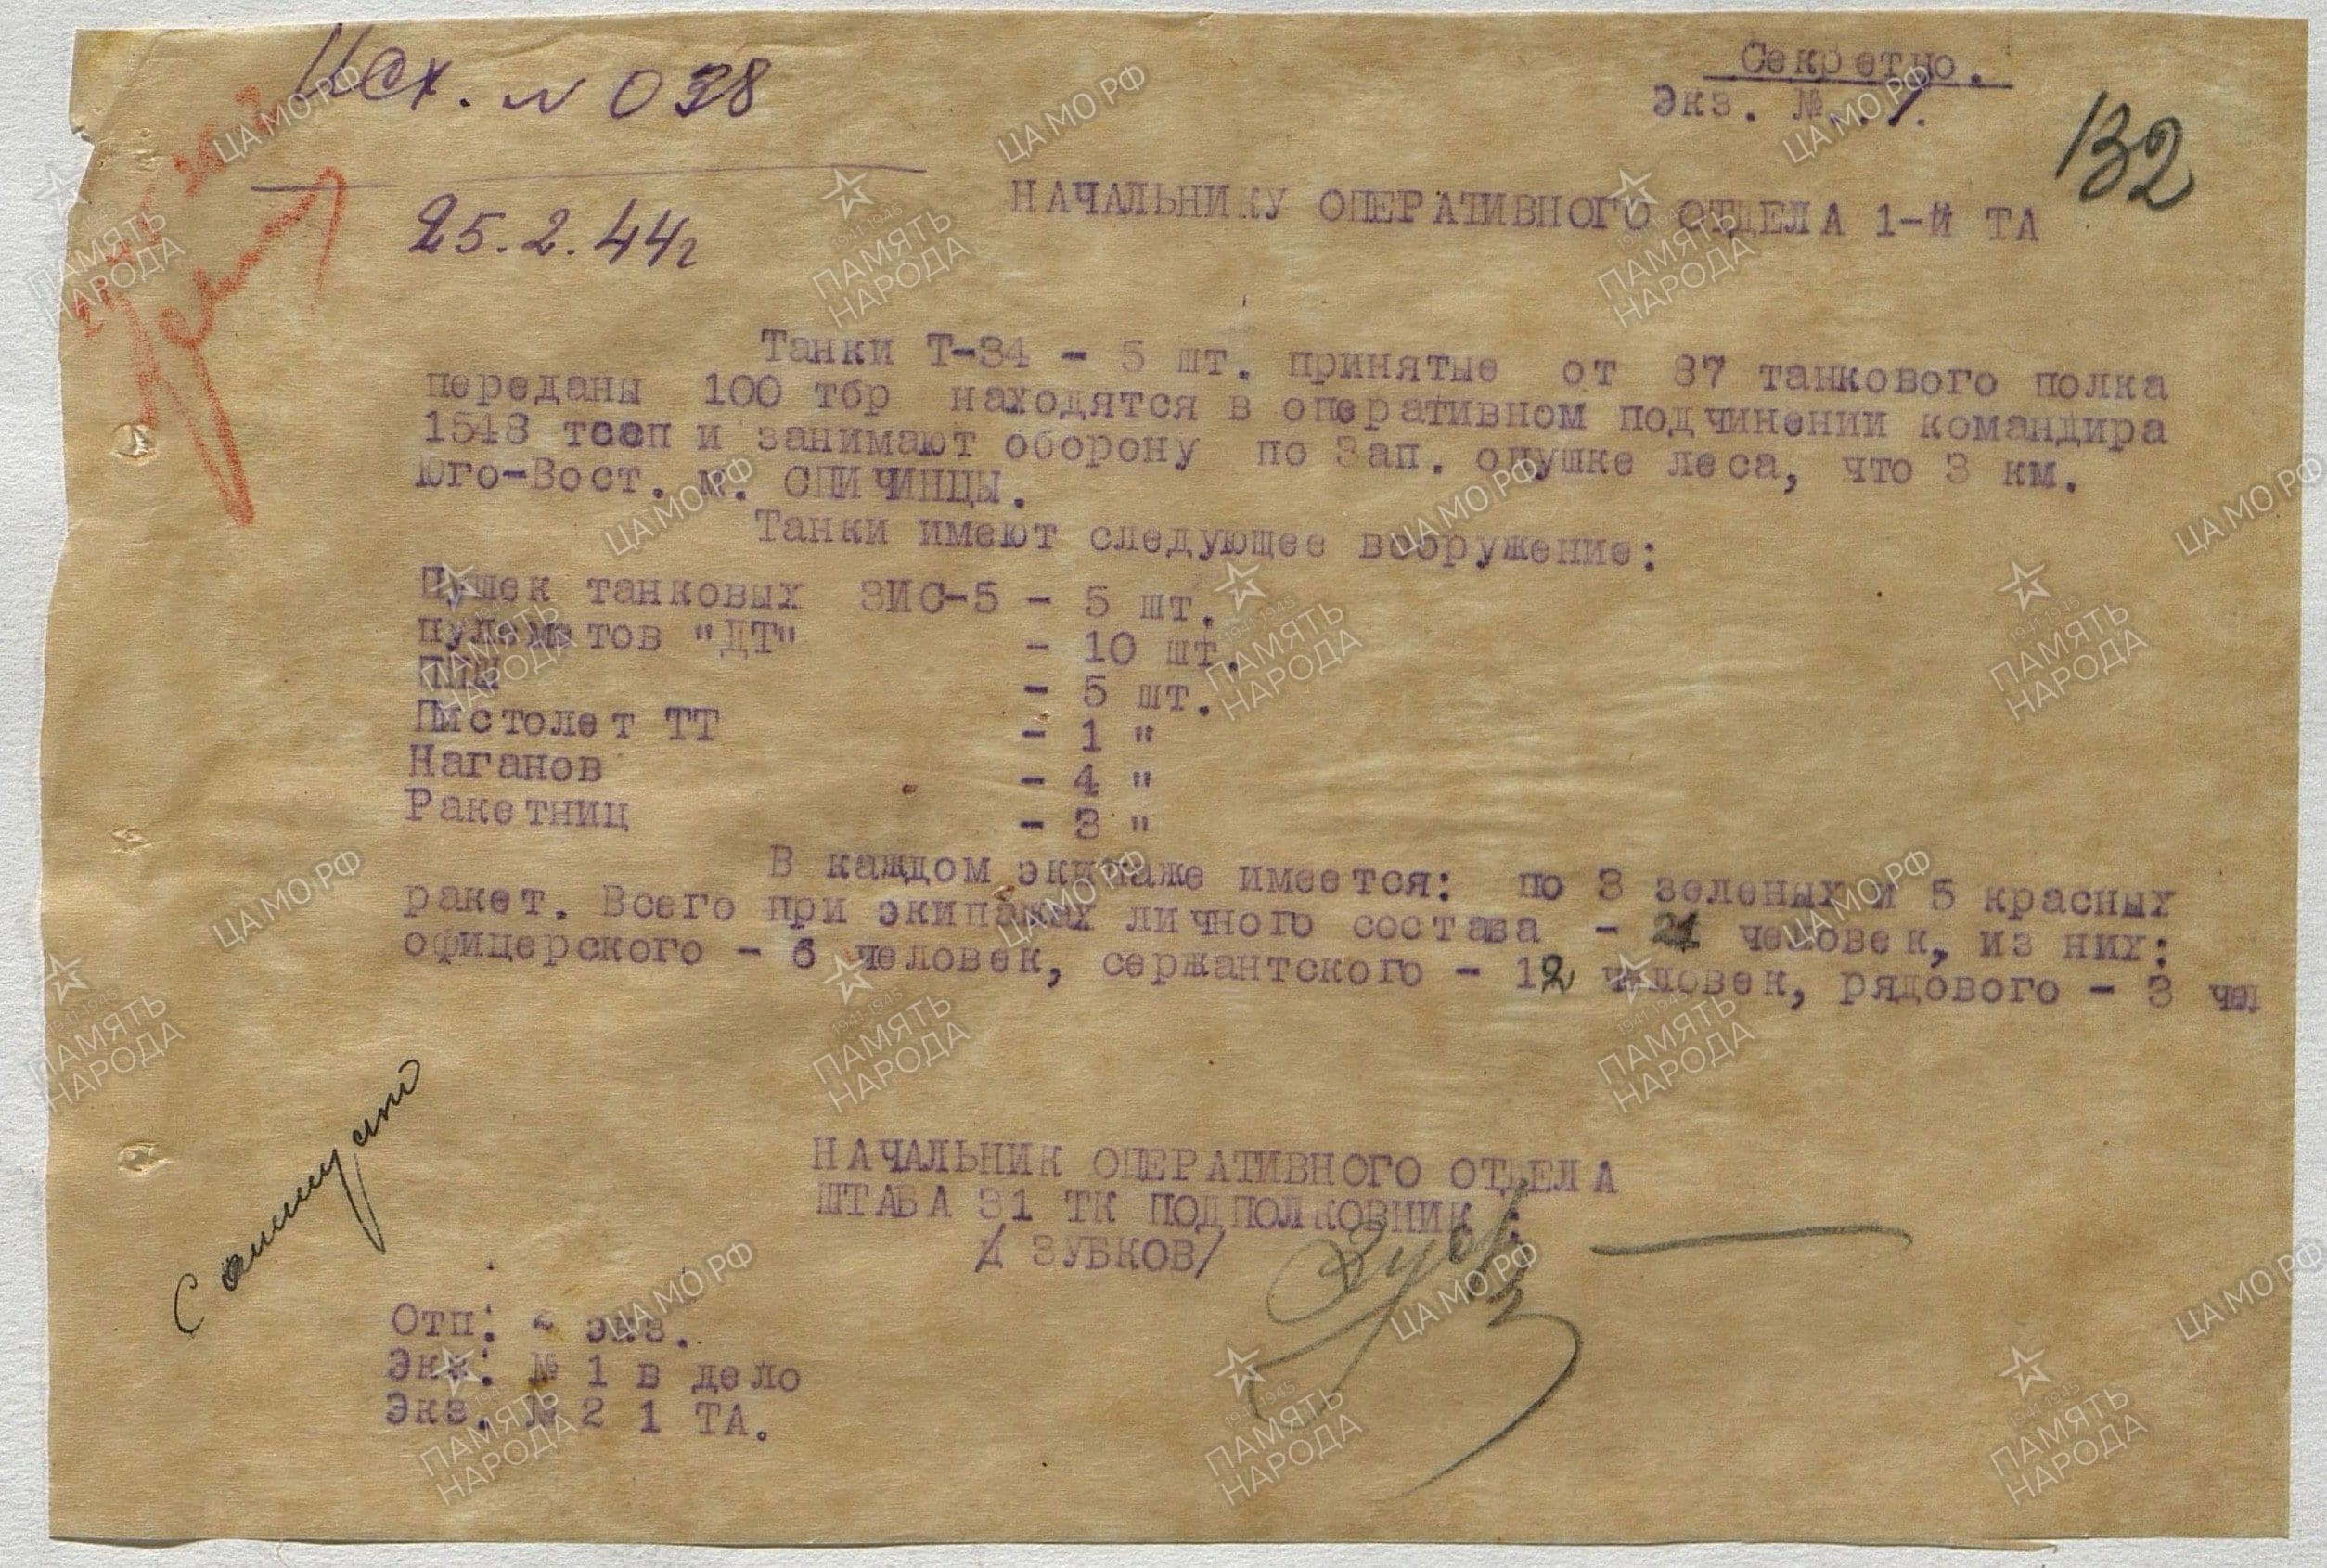 Исх. № 038
Секретно.
Экз. № 1.
132
25.2.44г
НАЧАЛЬНИКУ ОПЕРАТИВНОГО ОТДЕЛА 1-й ТА
Танки Т-34 - 5 шт. принятые от 87 танкового полка
переданы 100 тбр находятся в оперативном подчинении командира
1548 тсап и занимают оборону по Зап. опушке леса, что 3 км.
Юго-Вост. м. СПИЧИНЦЫ.
Танки имеют следующее вооружение:
Пушек танковых ЗИС-5 - 5 шт.
пулеметов "ДТ" - 10 шт.
ППШ - 5 шт.
Пистолет ТТ - 1 "
Наганов - 4 "
Ракетниц - 3 "
В каждом экипаже имеется: по 3 зеленых и 5 красных
ракет. Всего при экипажах личного состава - 21 человек, из них:
офицерского - 6 человек, сержантского - 12 человек, рядового - 3 чел
НАЧАЛЬНИК ОПЕРАТИВНОГО ОТДЕЛА
ШТАБА 31 ТК ПОДПОЛКОВНИК :
/ ЗУБКОВ/
Отп: экз.
Экз: № 1 в дело
Экз. № 2 1 ТА.
ЦА МО РФ
ПАМЯТЬ НАРОДА
1941-1945